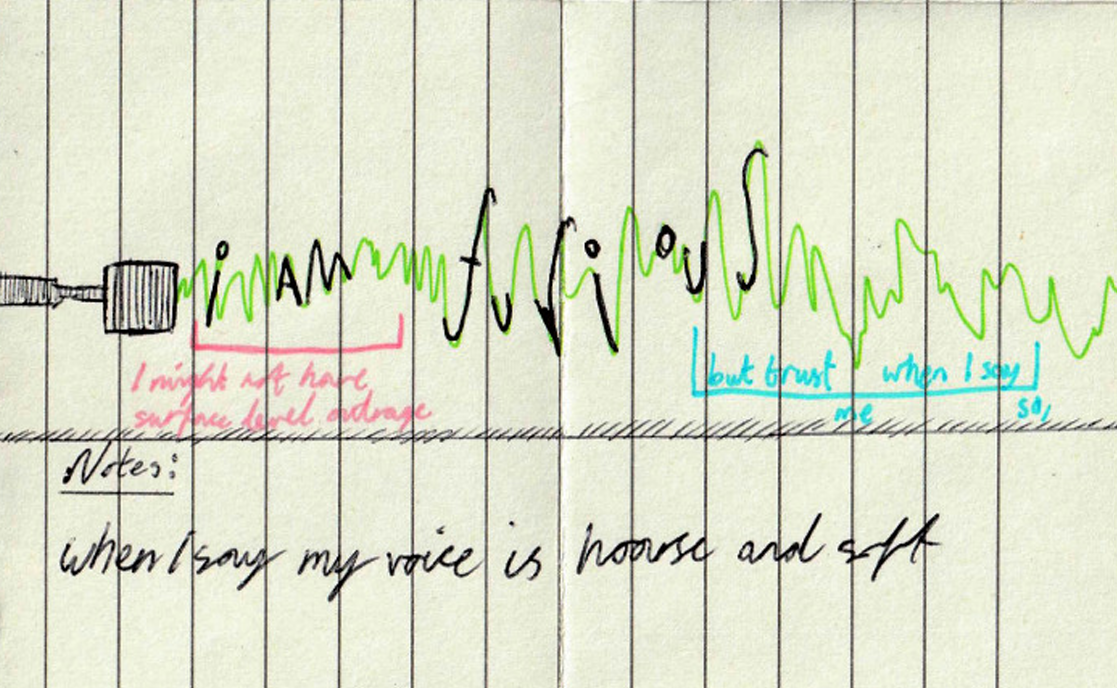 i AM furious
I might not have
surface level outrage
but trust when I say
me so,
Notes:
when I say my voice is hoarse and soft